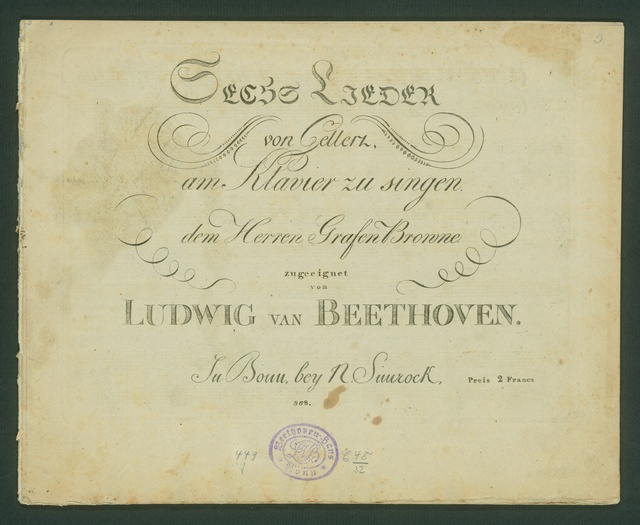 Sechs Lieder
von Gellert,
am Klavier zu singen.
dem Herren Grafen Browne.
zugeeignet
von
LUDWIG VAN BEETHOVEN.
In Bonn, bey N. Simrock,
Preis 2 Francs
Beethoven-Haus
Bonn
449
C 45
32